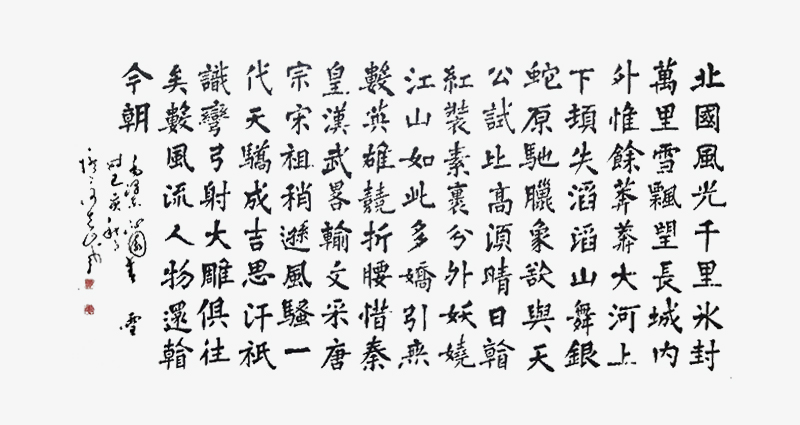 北國風光千里冰封
萬里雪飄望長城內
外惟餘莽莽大河上
下頓失滔滔山舞銀
蛇原馳臘象欲與天
公試比高須晴日看
紅裝素裹分外妖嬈
江山如此多嬌引無
數英雄競折腰惜秦
皇漢武畧輸文采唐
宗宋祖稍遜風騷一
代天驕成吉思汗祇
識彎弓射大雕俱往
矣數風流人物還看
今朝
毛澤東沁園春 雪
時己亥秋月